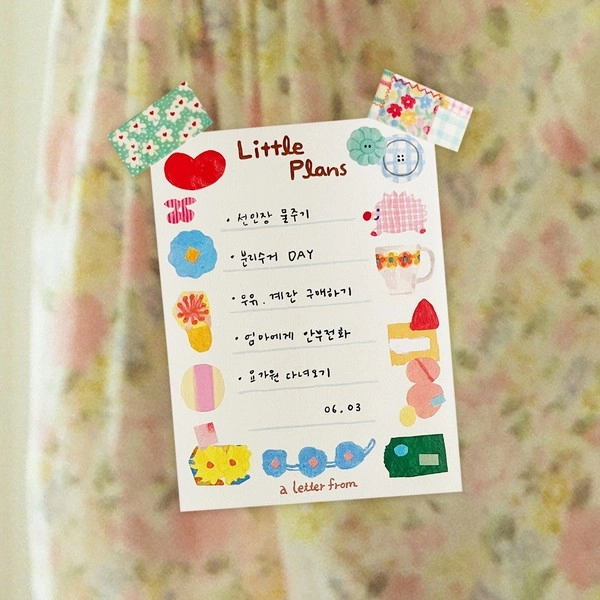 Little
Plans
· 선인장 물주기
· 분리수거 DAY
· 우유, 계란 구매하기
· 엄마에게 안부전화
· 요가원 다녀오기
06.03
a letter from